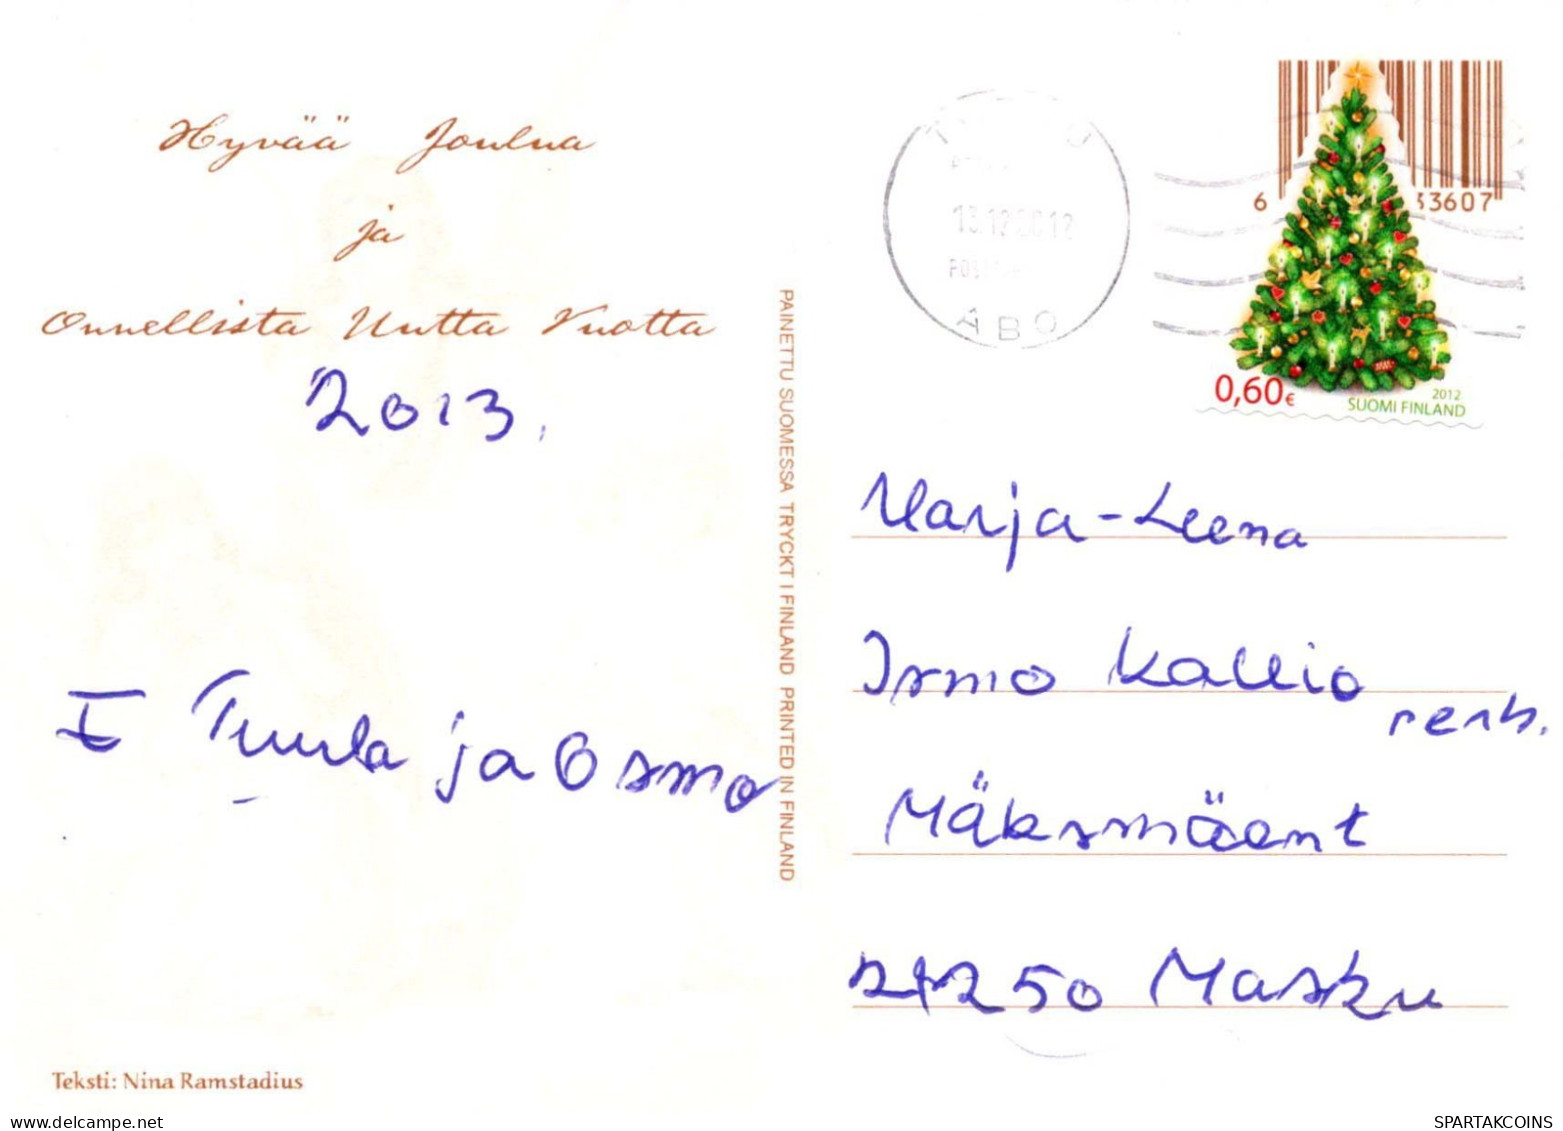 Hyvää Joulua
ja
Onnellista Uutta Vuotta
2013.
Tuula ja Osmo
Teksti: Nina Ramstadius
PAINETTU SUOMESSA TRYCKT I FINLAND PRINTED IN FINLAND
13.12.2012
ÅBO
6 33607
0,60€
2012
SUOMI FINLAND
Marja-Leena
Irmo Kallio
Mäksmäent
21250 Masku
www.delcampe.net
SPARTAKCOINS